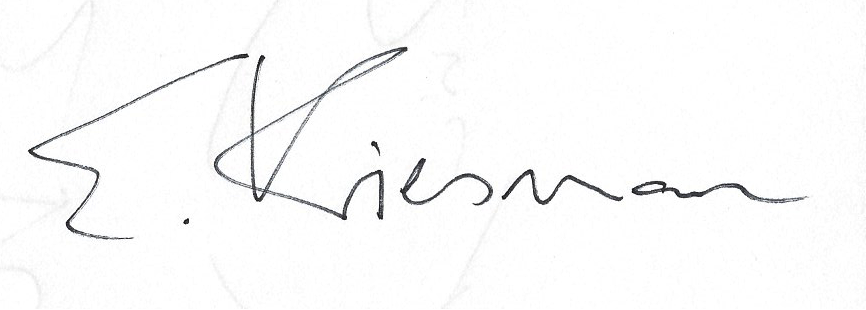 E. Kriesman